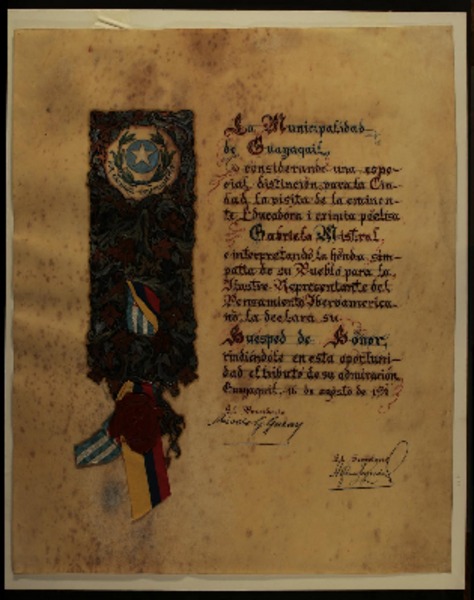 La Municipalidad
de Guayaquil,
considerando una espe-
cial distinción para la Ciu-
dad la visita de la eminen-
te Educadora i eximia poetisa
Gabriela Mistral,
e interpretando la honda sim-
patía de su Pueblo para la
Ilustre Representante del
Pensamiento Iberoamerica-
no, la declara su
Huesped de Honor,
rindiéndole en esta oportuni-
dad el tributo de su admiración.
Guayaquil, de agosto de
El
El